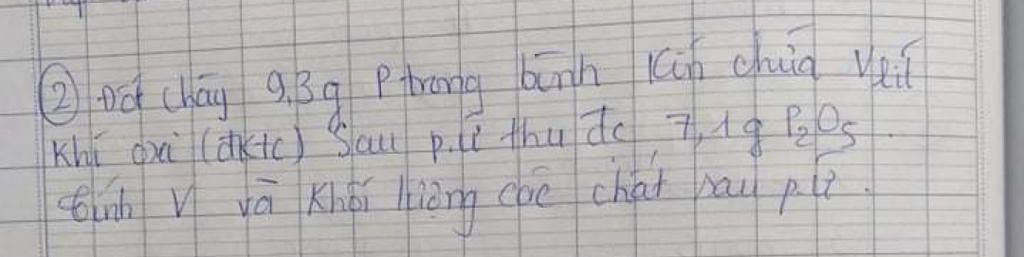 ② Đốt cháy 9,3g P trong bình kín chứa V lít
khí oxi (đktc) Sau p.ứ thu đc 7,1g P₂O₅.
tính V và khối lượng các chất sau p.ứ.